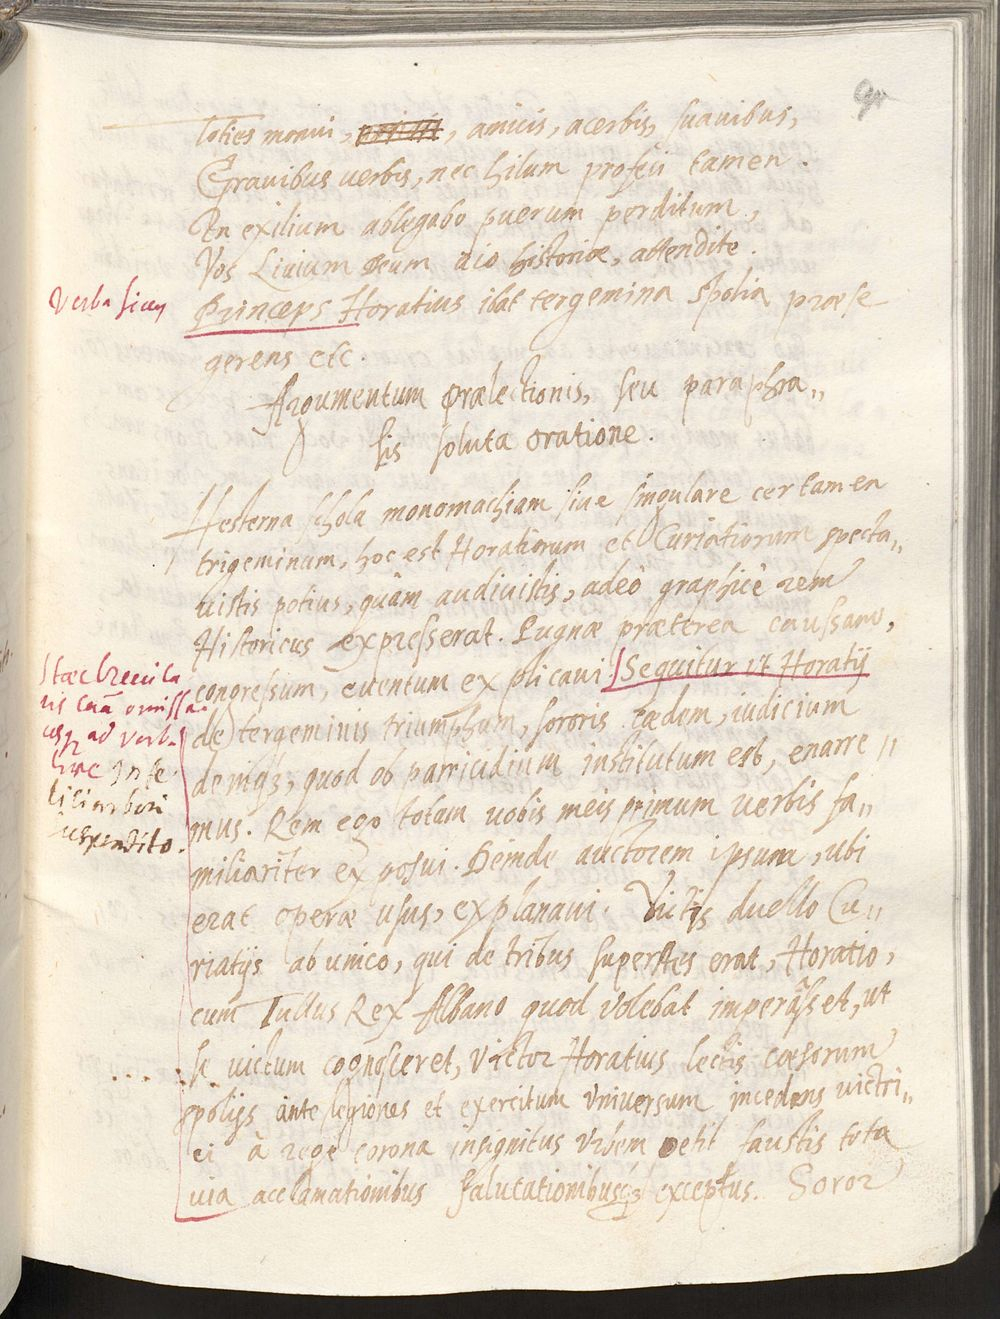 toties monui, amicis, acerbis, suavibus,
Gravibus verbis, nec hilum profeci tamen.
In exilium ablegabo puerum perditum,
Vos Livium Deum aio historiæ, attendite
Verba sieny
Princeps Horatius ibat tergemina spolia præse
gerens etc.
Argumentum prælectionis, seu paraphra„
sis soluta oratione.
Hesterna schola monomachiam sive singulare certamen
trigeminum, hoc est Horatiorum et Curiatiorum specta„
vistis potius, quâm audivistis, adeò graphicè rem
Historicus expresserat. Pugnæ præterea caussam,
congressum, eventum explicavi. Sequitur ut Horatij
de tergeminis triumphum, sororis cædem, iudicium
deniqȝ, quod ob parricidium institutum est, enarre„
mus. Rem ego totam vobis meis primum verbis fa„
miliariter exposui. Deinde auctorem ipsum, ubi
erat operæ usus, explanavi. Victis duello Cu„
riatijs ab unico, qui de tribus superstes erat, Horatio,
cum Tullus Rex Albano quod volebat imperasset, ut
se victum cognosceret, victor Horatius lectis cæsorum
spolijs ante legiones et exercitum universum incedens victri„
ci à rege corona insignitus urbem petit faustis tota
via acclamationibus salutationibusqȝ exceptus. Soror
Hæc brevita
tis caâ omissa
usqȝ ad verb.
hæc Infe
lici arbori
suspendito.